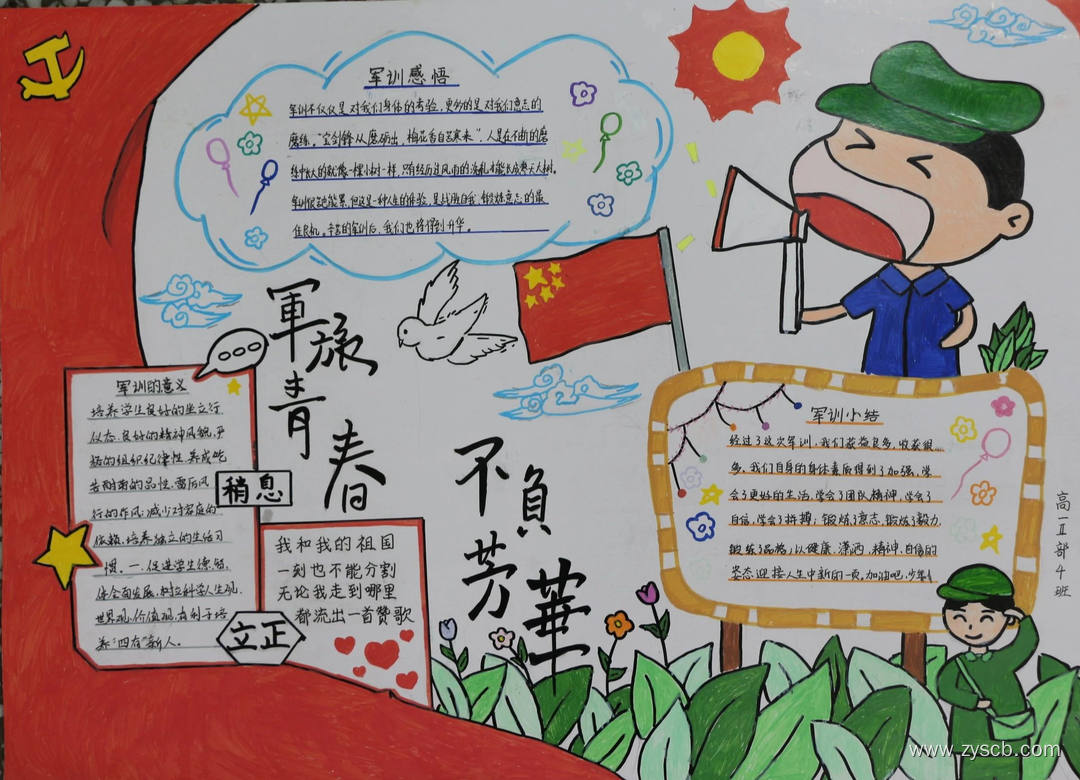 军训感悟
军训不仅仅是对我们身体的考验,更多的是对我们意志的
磨练。"宝剑锋从磨砺出,梅花香自苦寒来",人是在不断的磨
练中长大的就像一棵小树一样,只有经历过风雨的洗礼才能长成参天大树。
军训很苦很累,但这是一种人生的体验,是战胜自我,锻炼意志的最
佳良机。辛苦的军训后,我们也将得到升华。
軍旅青春
不負芳華
军训的意义
培养学生良好的坐立行
仪态,良好的精神风貌,严
格的组织纪律性,养成吃
苦耐劳的品性,雷厉风
行的作风;减少对家庭的
依赖,培养独立的生活习
惯。一.促进学生德智,
体全面发展,树立科学人生观,
世界观,价值观,有利于培
养"四有"新人。
稍息
立正
我和我的祖国
一刻也不能分割
无论我走到哪里
都流出一首赞歌
军训小结
经过了这次军训,我们获益良多,收获很
多。我们自身的身体素质得到了加强,学
会了更好的生活,学会了团队精神,学会了
自信,学会了拼搏;锻炼了意志,锻炼了毅力,
锻炼了品格;以健康,潇洒,精神,自信的
姿态迎接人生中新的一页。加油吧,少年!
高一Ⅱ部4班
www.zyscb.com